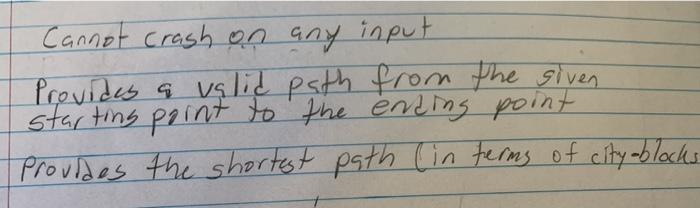 Cannot crash on any input
Provides a valid path from the given
starting point to the ending point
Provides the shortest path (in terms of city-blocks